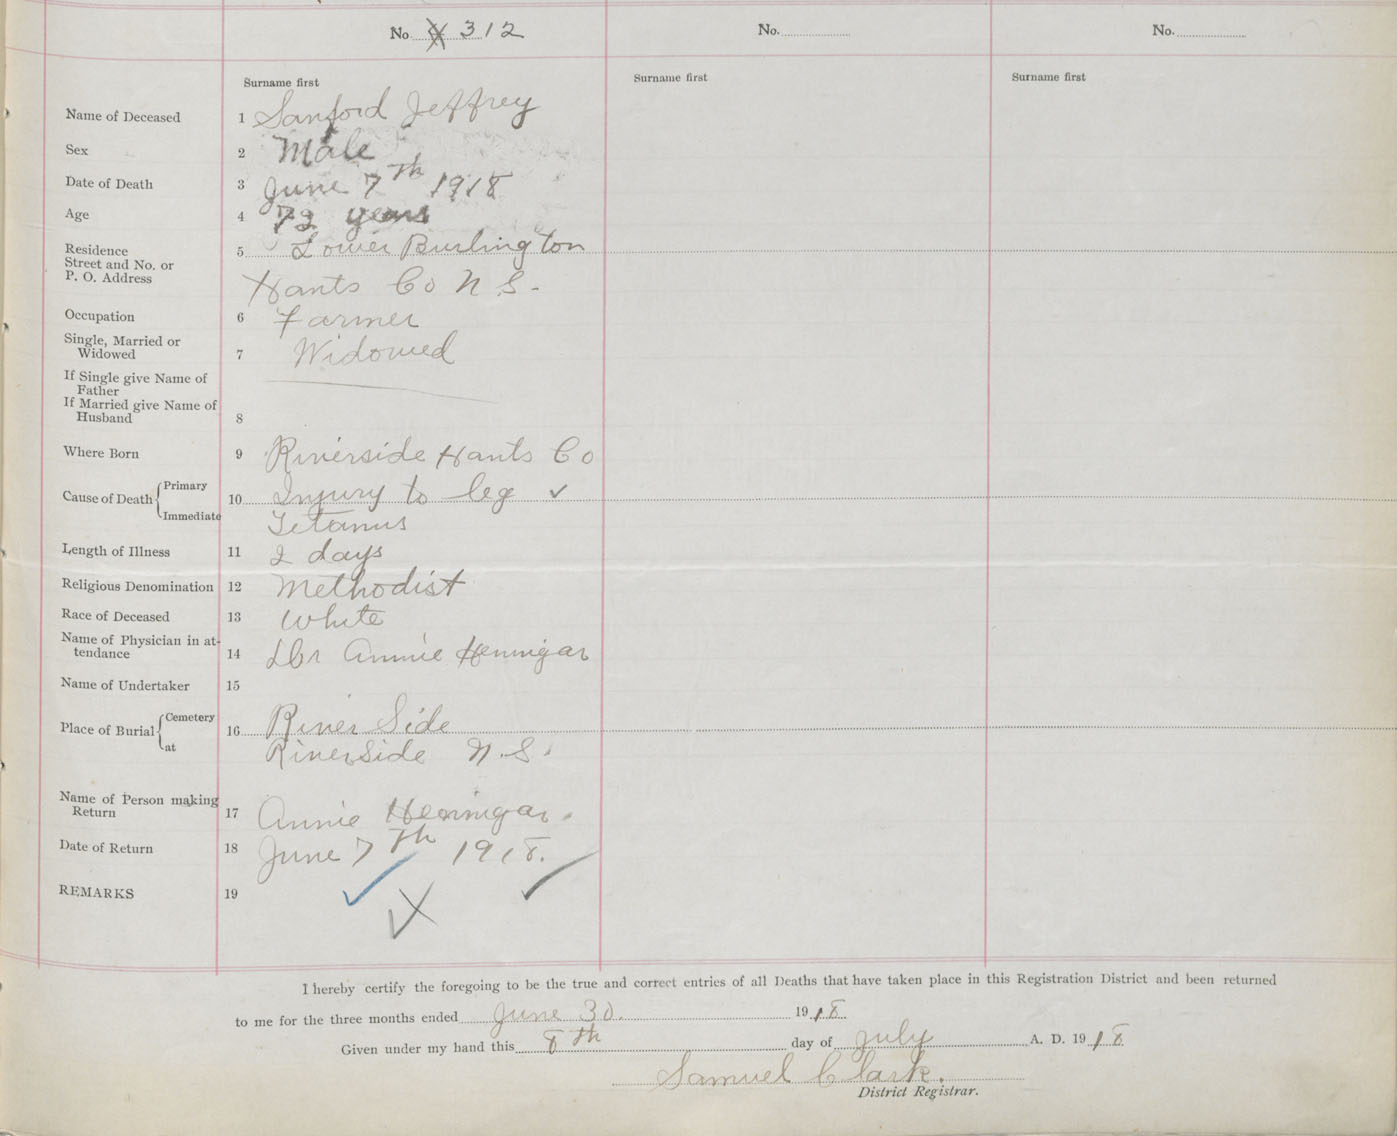 No. 312
No.
No.
Surname first
Surname first
Surname first
Name of Deceased 1 Sanford Jeffrey
Sex 2 Male
Date of Death 3 June 7th 1918
Age 4 72 years
Residence 5 Lower Burlington
Street and No. or
P. O. Address Hants Co N.S.
Occupation 6 Farmer
Single, Married or
Widowed 7 Widowed
If Single give Name of
Father
If Married give Name of
Husband 8
Where Born 9 Riverside Hants Co
Cause of Death Primary 10 Injury to leg ✓
Immediate Tetanus
Length of Illness 11 2 days
Religious Denomination 12 Methodist
Race of Deceased 13 White
Name of Physician in at-
tendance 14 Annie Hennigar
Name of Undertaker 15
Place of Burial Cemetery 16 River Side
at Riverside N.S.
Name of Person making
Return 17 Annie Hennigar.
Date of Return 18 June 7th 1918.
REMARKS 19
I hereby certify the foregoing to be the true and correct entries of all Deaths that have taken place in this Registration District and been returned
to me for the three months ended June 30. 1918
Given under my hand this 8th day of July A. D. 1918
Samuel Clark.
District Registrar.